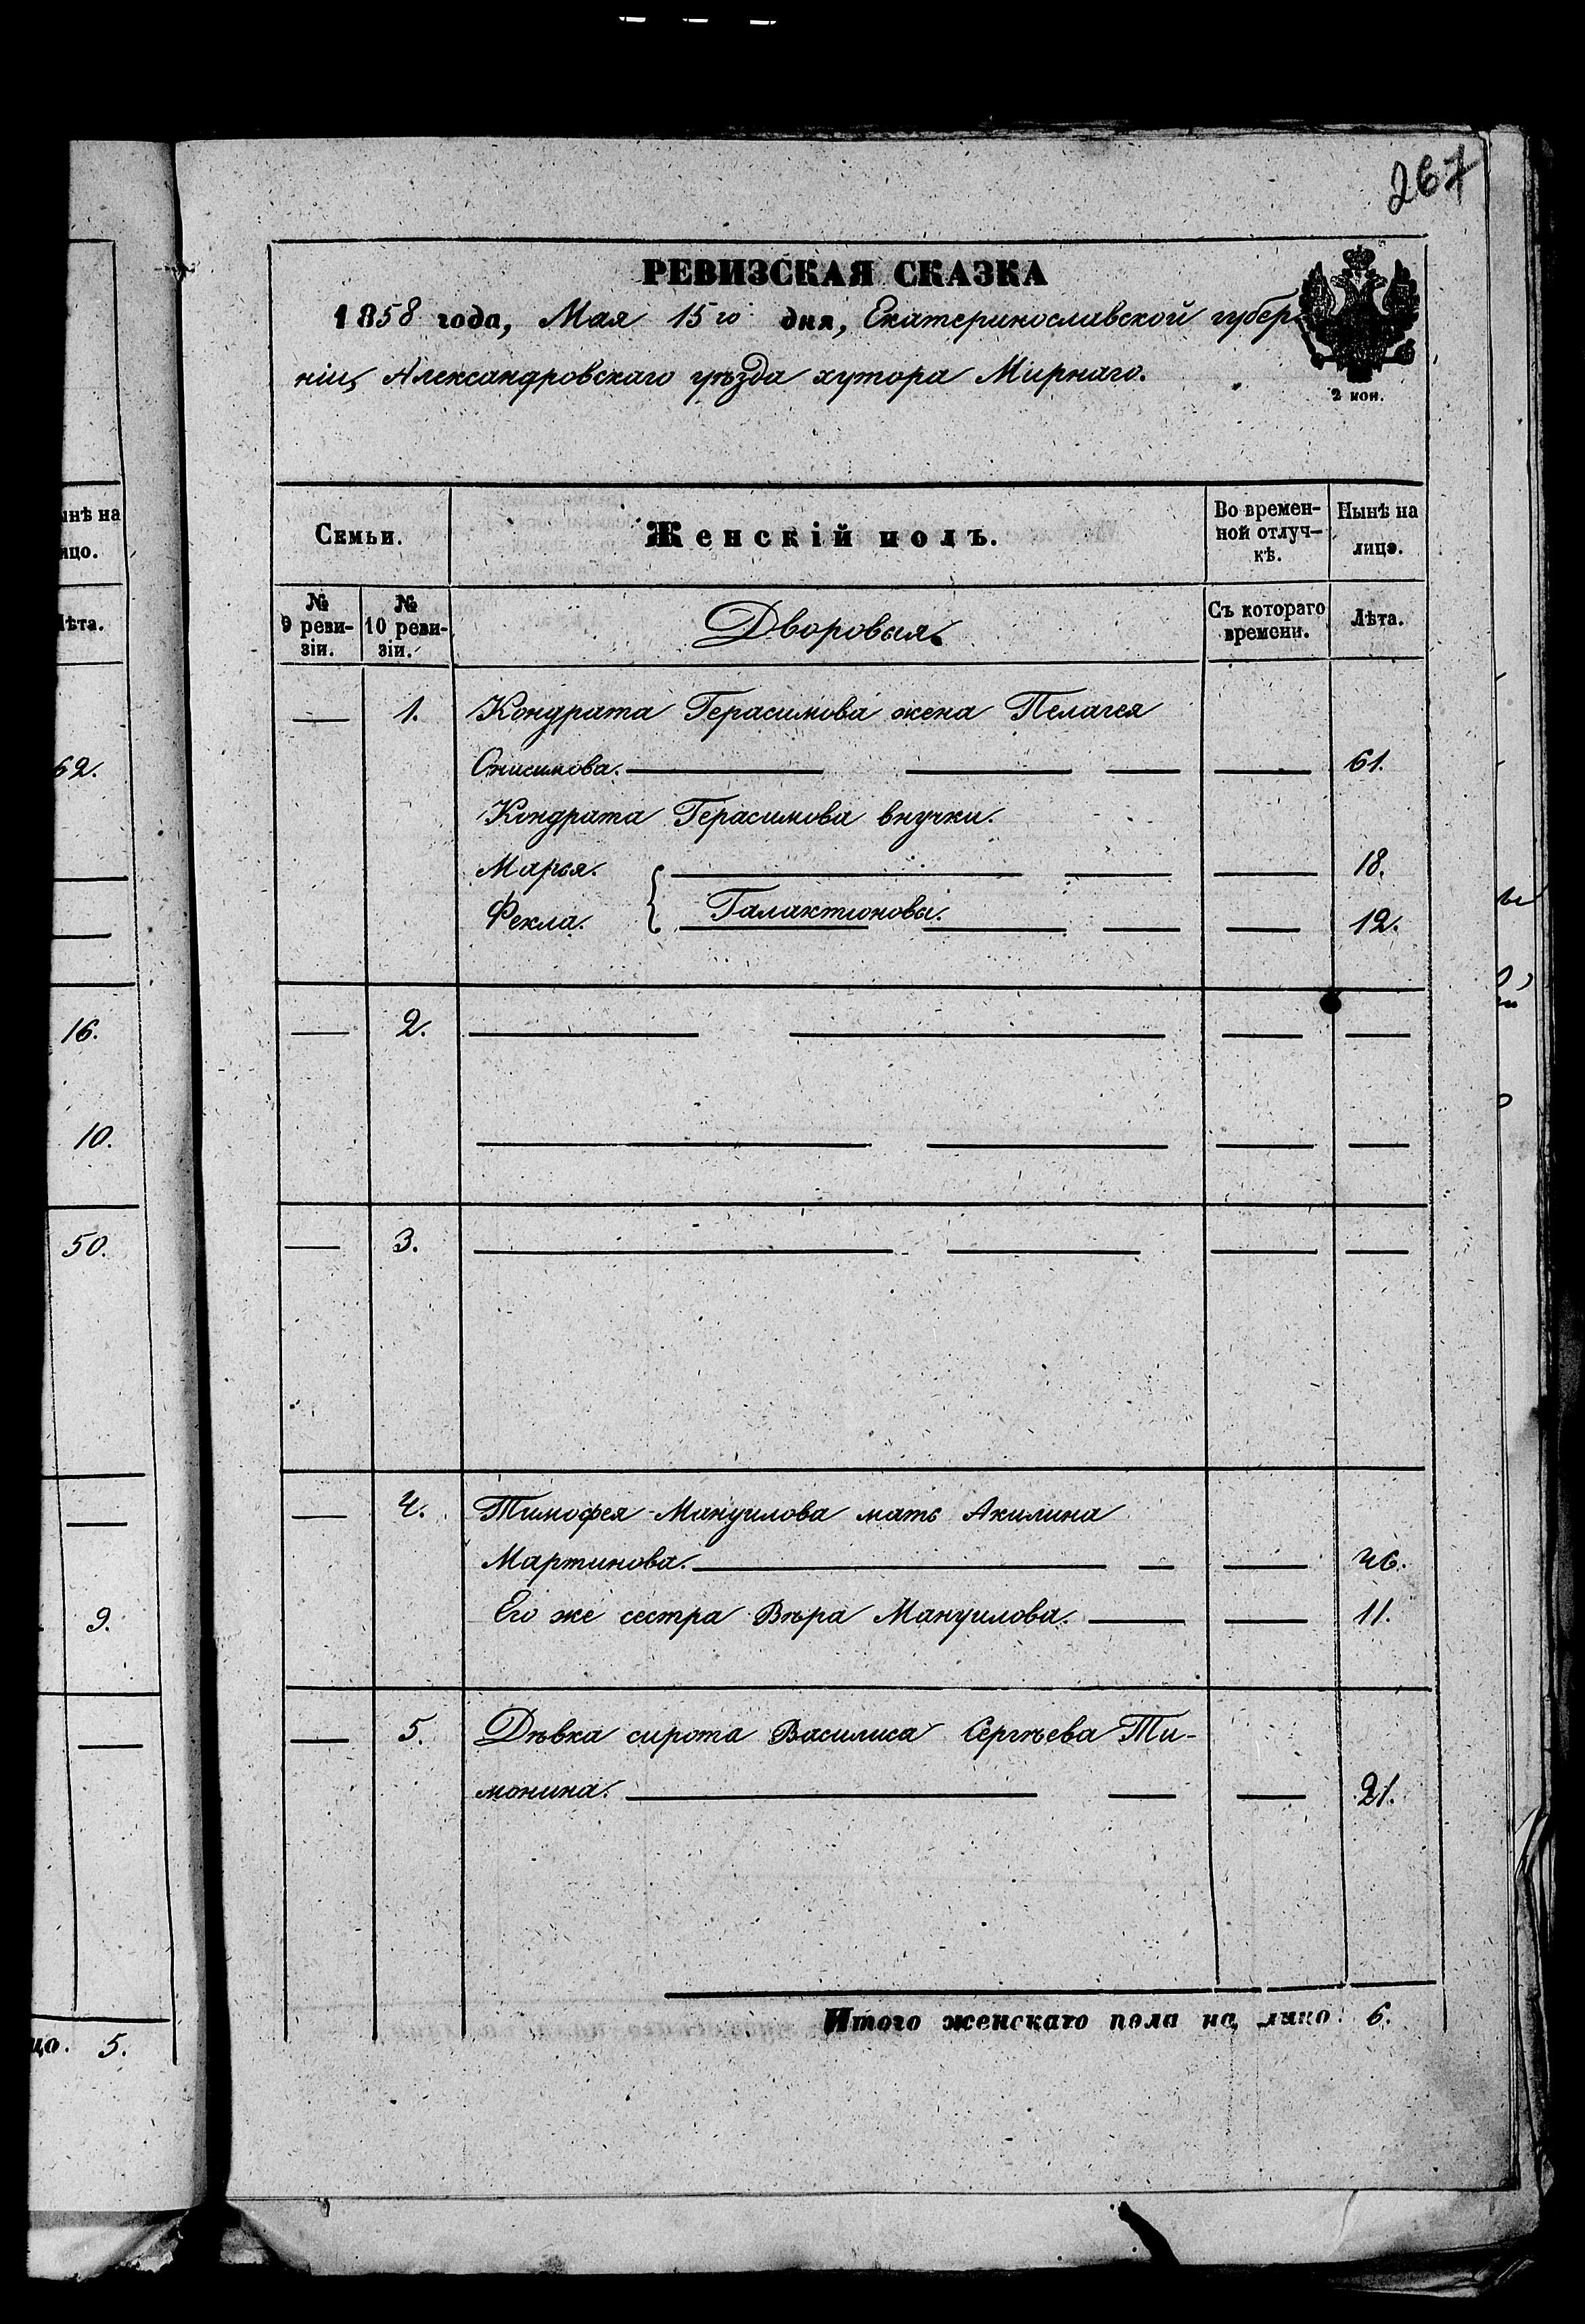 267
РЕВИЗСКАЯ СКАЗКА
1858 года, Мая 15го дня, Екатеринославской губер-
ніи, Александровскаго уѣзда хутора Мирнаго.
2 коп.
Семьи. Женскій полъ. Во времен-
ной отлуч-
кѣ. Нынѣ на
лицо.
№
9 реви-
зіи. №
10 реви-
зіи. Дворовыя. Съ котораго
времени. Лѣта.
— 1. Кондрата Герасимова жена Пелагея
Онисимова. — — — — 61.
Кондрата Герасимова внучки.
Марья. { — — — 18.
Фекла. Галактионовы. — — — — 12.
— 2. — — — —
— — — —
— 3. — — — —
— 4. Тимофея Мануилова мать Акилина
Мартинова. — — — 46.
Его же сестра Вѣра Мануилова. — — 11.
— 5. Дѣвка сирота Василиса Сергѣева Ти-
монина. — — — 21.
Итого женскаго пола на лицо. 6.
инѣ на
ицо.
Лѣта.
62.
16.
10.
50.
9.
цо. 5.